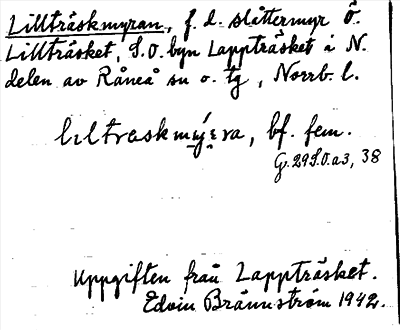 Lillträskmyran, f. d. slåttermyr Ö.
Lillträsket, S.O. byn Lappträsket i N.
delen av Råneå sn o. tg, Norrb. l.
liltraskmýra, bf. fem.
G. 29 S.O. a 3, 38
Uppgiften från Lappträsket.
Edvin Brännström 1942.